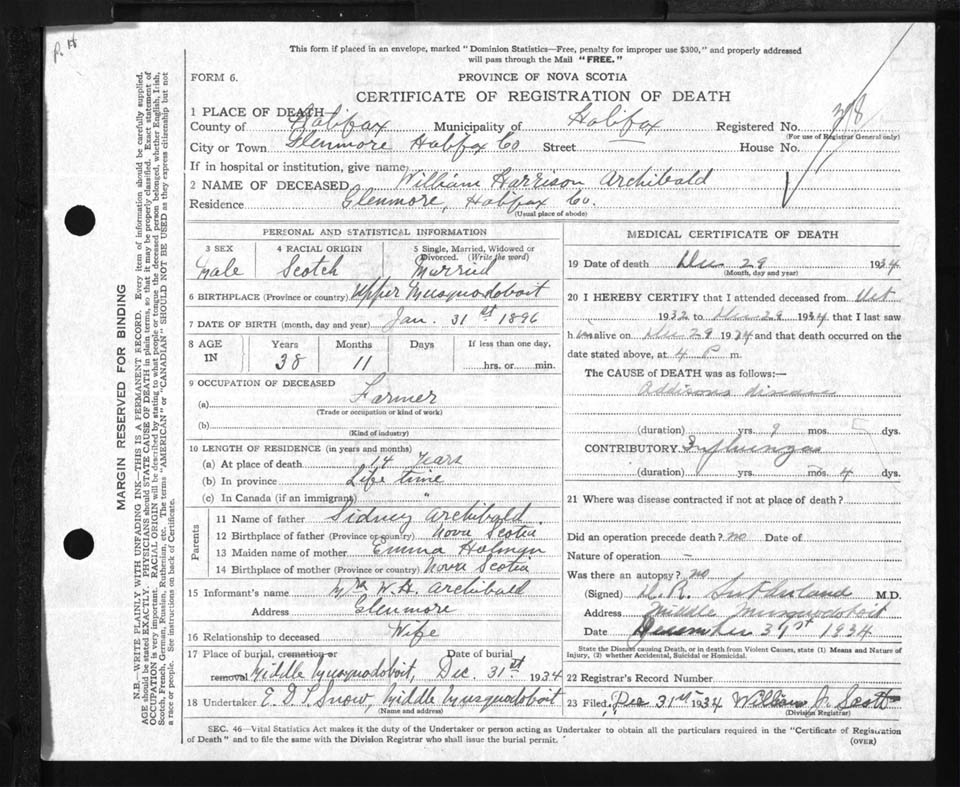 P. H
This form if placed in an envelope, marked "Dominion Statistics—Free, penalty for improper use $300," and properly addressed
will pass through the Mail "FREE."
FORM 6.
PROVINCE OF NOVA SCOTIA
CERTIFICATE OF REGISTRATION OF DEATH
1 PLACE OF DEATH
County of Halifax Municipality of Halifax Registered No.
(For use of Registrar General only)
City or Town Glenmore Halifax Co Street House No.
If in hospital or institution, give name
2 NAME OF DECEASED William Harrison Archibald
Residence Glenmore, Halifax Co.
(Usual place of abode)
PERSONAL AND STATISTICAL INFORMATION
3 SEX 4 RACIAL ORIGIN 5 Single, Married, Widowed or
Divorced. (Write the word)
Male Scotch Married
6 BIRTHPLACE (Province or country) Upper Musquodoboit
7 DATE OF BIRTH (month, day and year) Jan. 31st 1896
8 AGE IN Years Months Days If less than one day,
38 11 hrs. or min.
9 OCCUPATION OF DECEASED
(a) Farmer
(Trade or occupation or kind of work)
(b)
(Kind of industry)
10 LENGTH OF RESIDENCE (in years and months)
(a) At place of death 14 years
(b) In province Life time
(c) In Canada (if an immigrant) "
Parents
11 Name of father Sidney Archibald
12 Birthplace of father (Province or country) Nova Scotia
13 Maiden name of mother Emma Holman
14 Birthplace of mother (Province or country) Nova Scotia
15 Informant's name Mrs W. H. Archibald
Address Glenmore
16 Relationship to deceased Wife
17 Place of burial, cremation or Date of burial
removal Middle Musquodoboit, Dec. 31st 1934
18 Undertaker E. D. Snow, Middle Musquodoboit
(Name and address)
MEDICAL CERTIFICATE OF DEATH
19 Date of death Dec 29 1934
(Month, day and year)
20 I HEREBY CERTIFY that I attended deceased from Oct
1932 to Dec 29 1934 that I last saw
h im alive on Dec 29 1934 and that death occurred on the
date stated above, at 4 P m.
The CAUSE of DEATH was as follows:—
Addisons disease
(duration) yrs. 9 mos. dys.
CONTRIBUTORY Influenza
(duration) yrs. mos. 4 dys.
21 Where was disease contracted if not at place of death?
Did an operation precede death? no Date of
Nature of operation –
Was there an autopsy? no
(Signed) R. Sutherland M.D.
Address Middle Musquodoboit
Date December 31st 1934
State the Disease causing Death, or in death from Violent Causes, state (1) Means and Nature of
Injury, (2) whether Accidental, Suicidal or Homicidal.
22 Registrar's Record Number
23 Filed, Dec 31st 1934 William Scott
(Division Registrar)
SEC. 46—Vital Statistics Act makes it the duty of the Undertaker or person acting as Undertaker to obtain all the particulars required in the "Certificate of Registration
of Death" and to file the same with the Division Registrar who shall issue the burial permit.
(OVER)
MARGIN RESERVED FOR BINDING
N.B.—WRITE PLAINLY WITH UNFADING INK—THIS IS A PERMANENT RECORD. Every item of information should be carefully supplied.
AGE should be stated EXACTLY. PHYSICIANS should STATE CAUSE OF DEATH in plain terms, so that it may be properly classified. Exact statement of
OCCUPATION is very important. RACIAL ORIGIN will be described by stating to what people or tongue the deceased person belonged, whether English, Irish,
Scotch, French, German, Russian, Ruthenian, etc. The terms "AMERICAN" or "CANADIAN" SHOULD NOT BE USED as they express citizenship but not
a race or people. See instructions on back of Certificate.